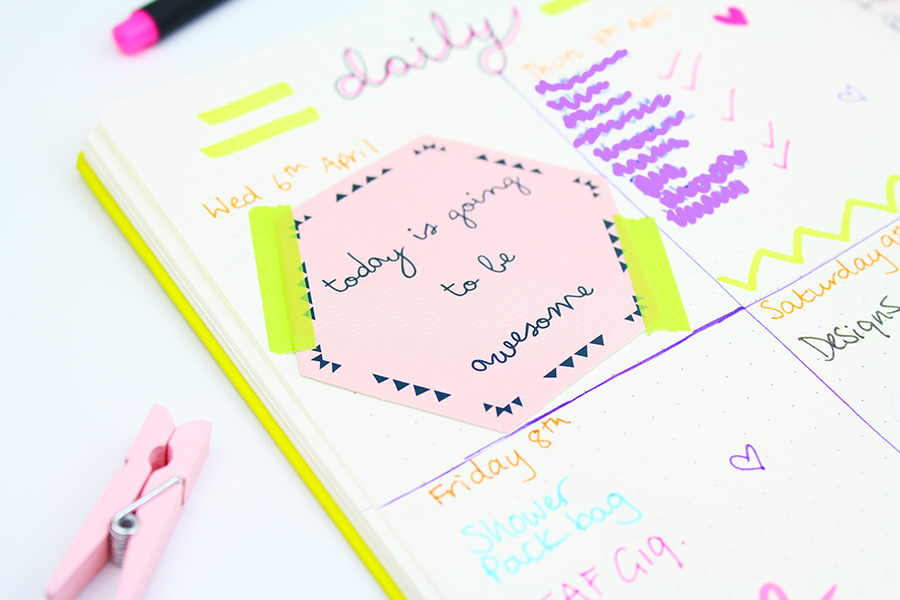 daily
Wed 6th April
today is going
to be
awesome
Thurs 7th April
Friday 8th
Shower
Pack bag
Gig.
Saturday
Designs